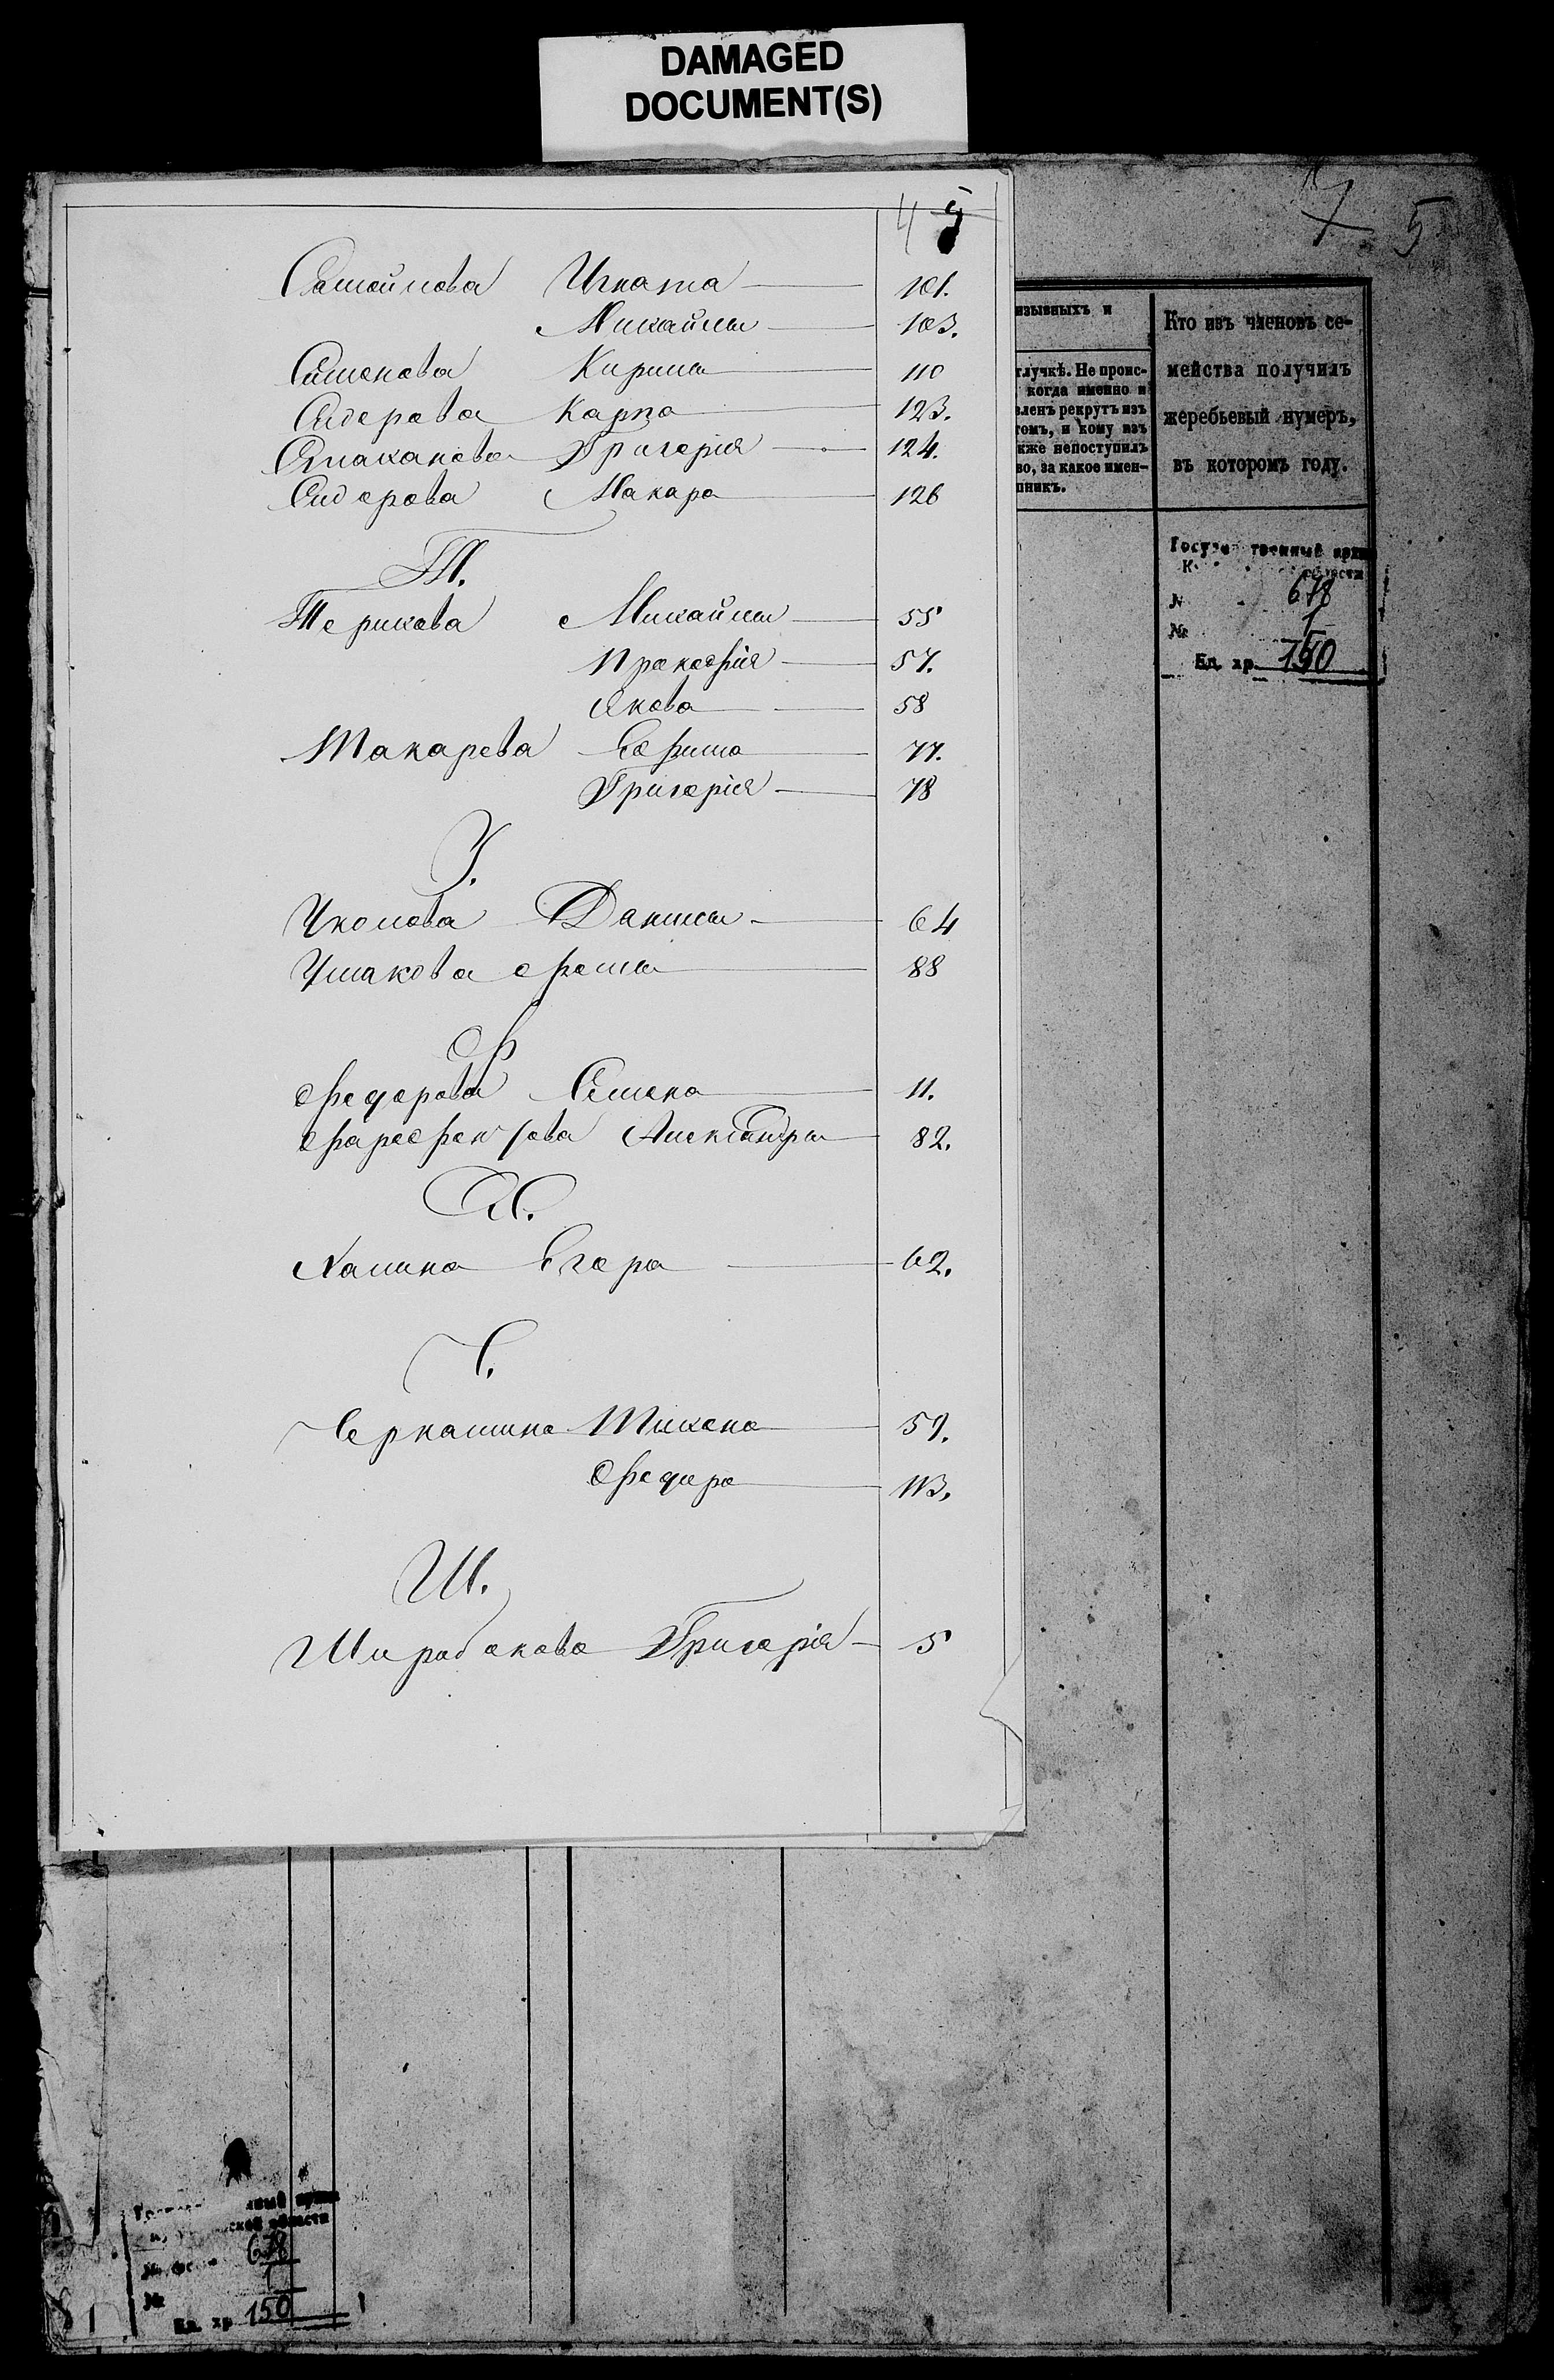 DAMAGED
DOCUMENT(S)
7 5
4 5
Самойлова Игната 101.
Михайлы 103.
Симонова Кирила 110
Сидорова Карпа 123.
Стаканова Григорія 124.
Сидорова Макара 126
Т.
Терихова Михайлы 55
Прокофія 57.
Якова 58
Токарева Ефима 77.
Григорія 78
У.
Уколова Данилы 64
Ушакова Фомы 88
Ф
Федорова Семена 11.
Александра 82.
Х.
Халина Егора 62.
Ч.
Черкашина Тихона 59.
Федора 113.
Ш.
Широбокова Григорія 5
изывныхъ и
тлучкѣ. Не проис-
когда именно и
вленъ рекрутъ изъ
томъ, и кому изъ
кже непоступилъ
во, за какое имен-
пникъ.
Кто изъ членовъ се-
мейства получилъ
жеребьевый нумеръ,
въ которомъ году.
678
№ 1
Ед. хр. 150
ской области
678
№ 1
Ед. хр. 150